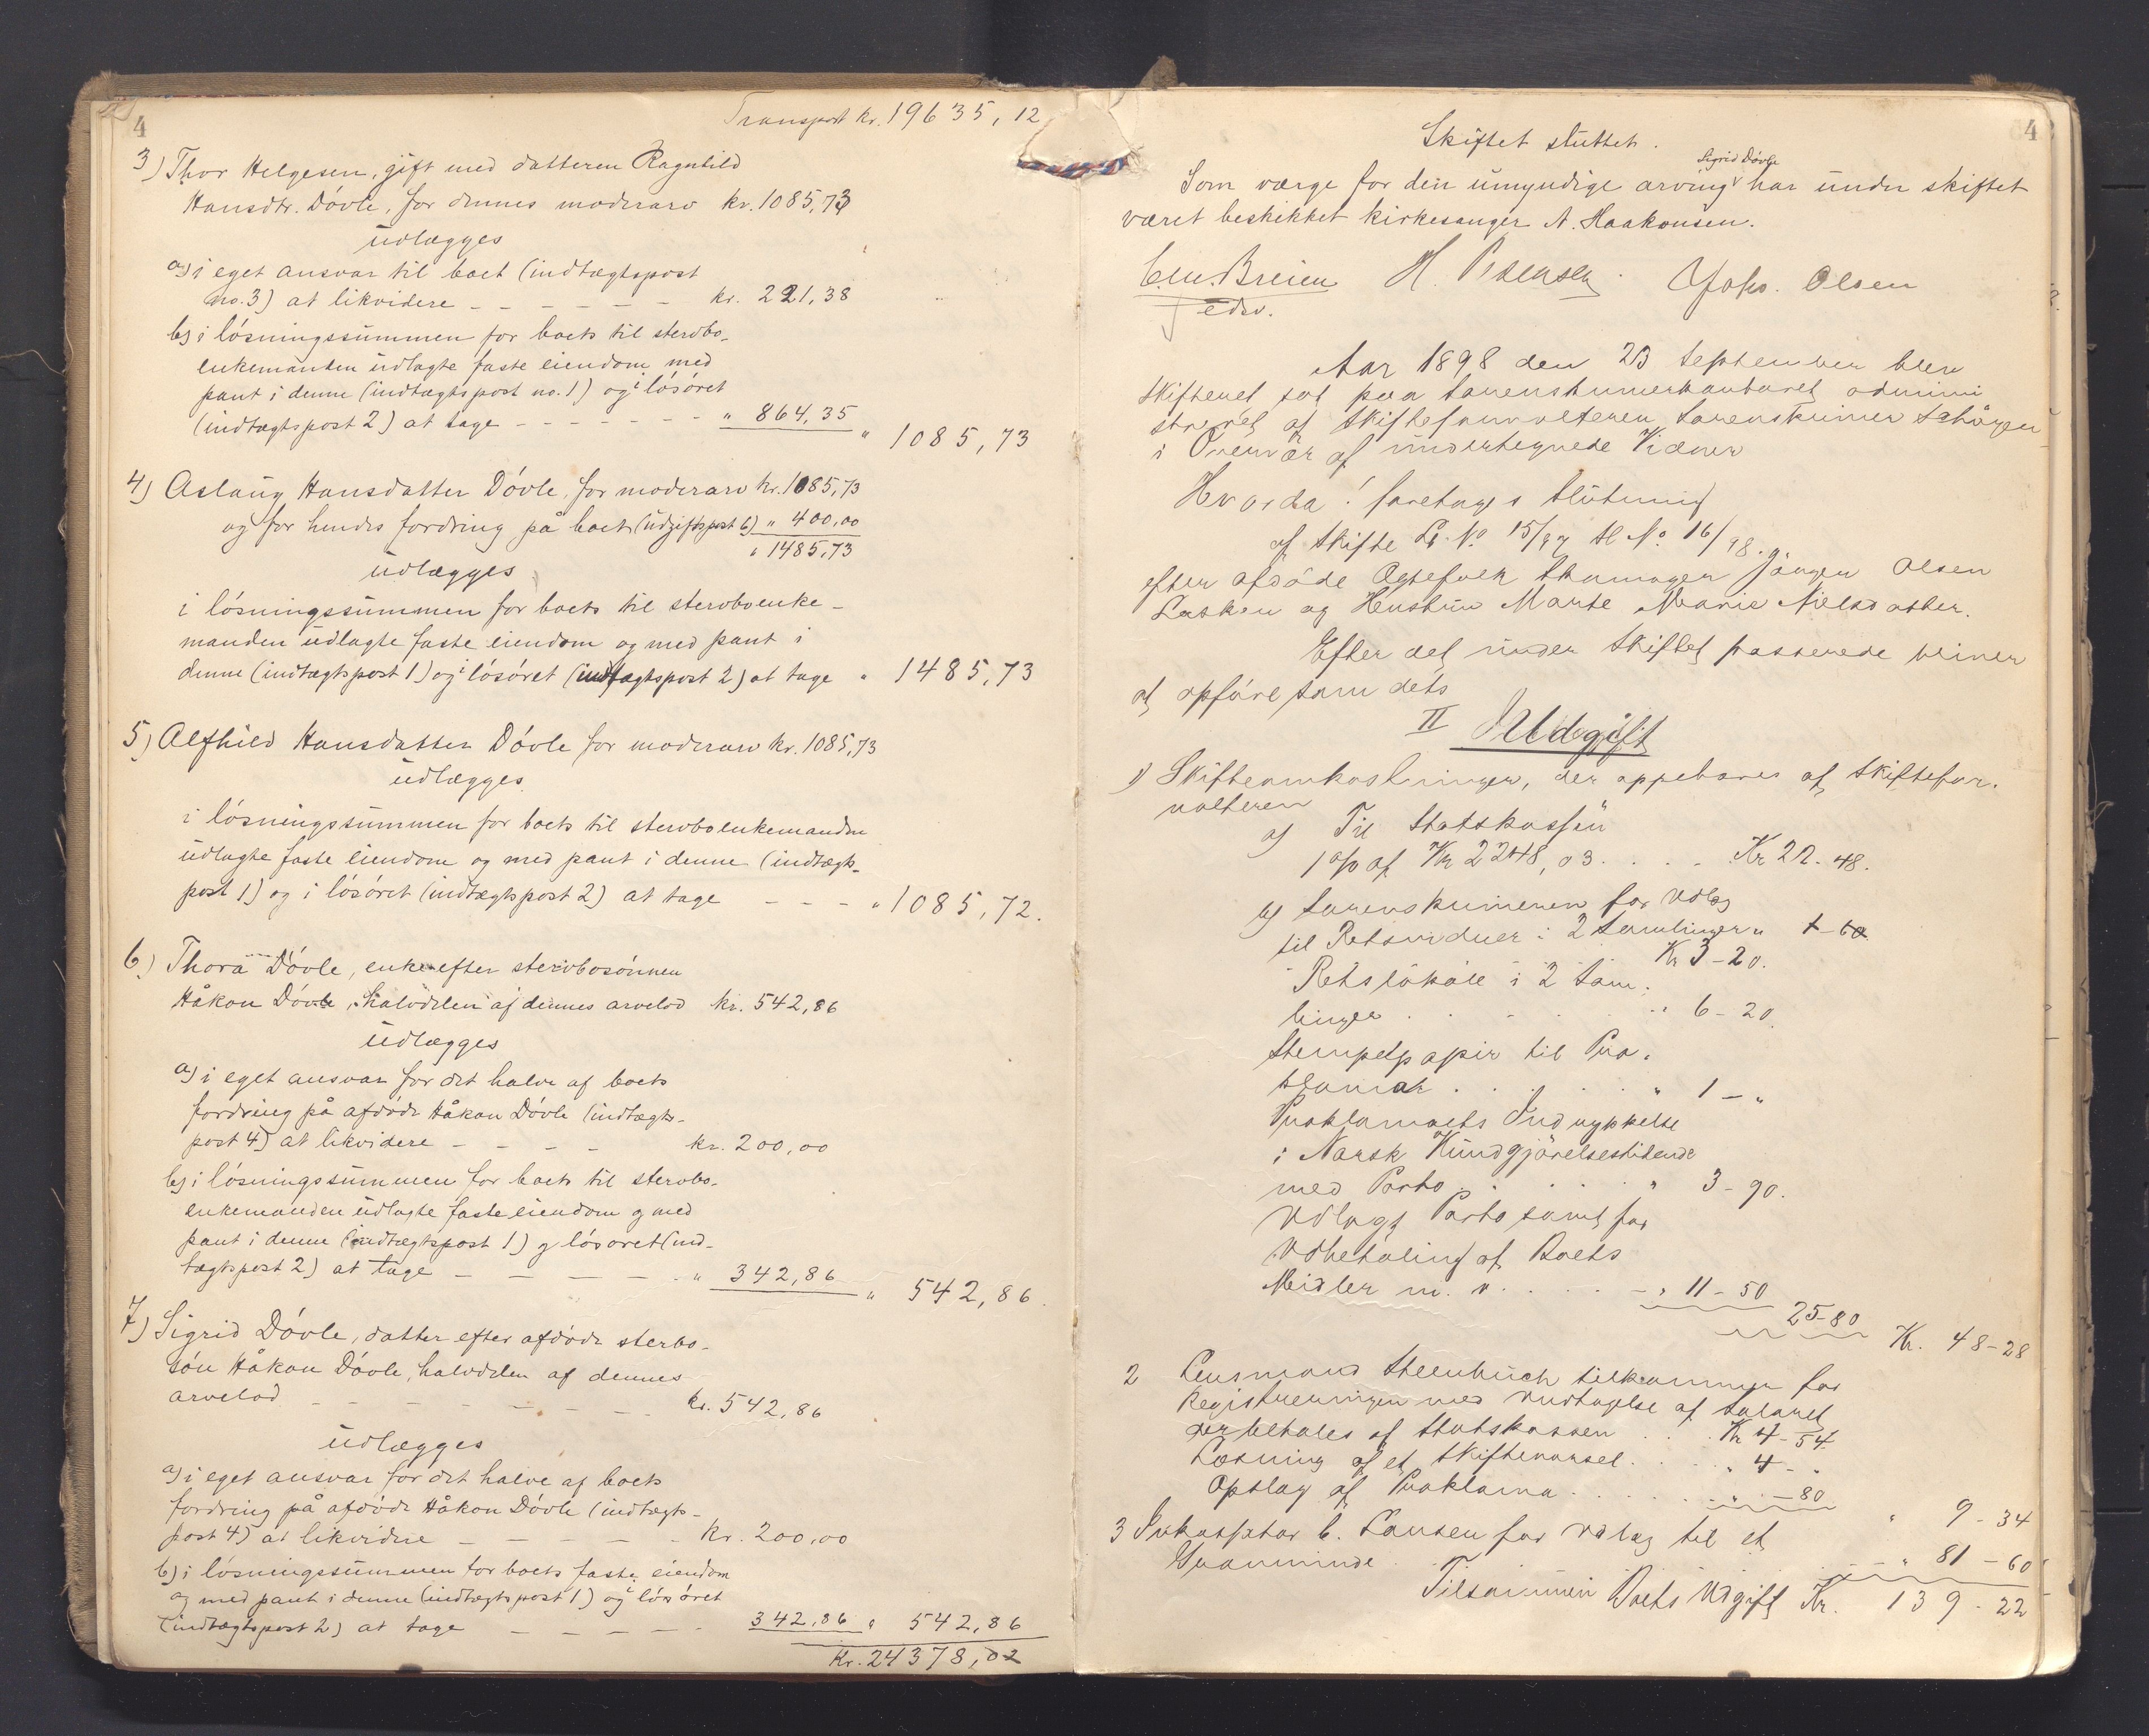 4
Transport kr. 19635,12
3) Thor Helgesen, gift med datteren Ragnhild
Hansdtr. Dóvle, for dennes moderarv kr. 1085,73
udlægges
a) i eget ansvar til boet (indtægtspost
no. 3) at likvidere – – – – – – kr. 221,38
b) i lósningssummen for boets til stervbo-
enkemanden udlagte faste eiendom med
pant i denne (indtægtspost no. 1) og i lósóret
(indtægtspost 2) at tage – – – – – – " 864,35
" 1085,73
4) Aslaug Hansdatter Dóvle, for moderarv kr. 1085,73
og for hendes fordring på boet (udgiftspost 6) " 400,00
" 1485,73
udlægges
i lósningssummen for boets til stervboenke-
manden udlagte faste eiendom og med pant i
denne (indtægtspost 1) og i lósóret (indtægtspost 2) at tage " 1485,73
5) Alfhild Hansdatter Dóvle for moderarv kr. 1085,73
udlægges
i lósningssummen for boets til stervboenkemanden
udlagte faste eiendom og med pant i denne (indtægts-
post 1) og i lósóret (indtægtspost 2) at tage – – – " 1085,72.
6) Thora Dóvle, enke efter stervbosónnen
Håkon Dóvle, halvdelen af dennes arvelod kr. 542,86
udlægges
a) i eget ansvar for det halve af boets
fordring på afdóde Håkon Dóvle (indtægts-
post 4) at likvidere – – – – kr. 200,00
b) i lósningssummen for boets til stervbo-
enkemanden udlagte faste eiendom og med
pant i denne (indtægtspost 1) og lósóret (ind-
tægtspost 2) at tage – – – – – " 342,86 " 542,86.
7) Sigrid Dóvle, datter efter afdóde stervbo-
són Håkon Dóvle, halvdelen af dennes
arvelod – – – – – – – kr. 542,86
udlægges
a) i eget ansvar for det halve af boets
fordring på afdóde Håkon Dóvle (indtægts-
post 4) at likvidere – – – – – – kr. 200,00
b) i lósningssummen for boets faste eiendom
og med pant i denne (indtægtspost 1) og i lósóret
(indtægtspost 2) at tage – – – – – 342,86 " 542,86
Kr. 24378,02
4
Skiftet sluttet.
Sigrid Dóvle
Som værge for den umyndige arving har under skiftet
været beskikket kirkesanger N. Haakonsen.
C.M. Breien H. Johs. Olsen
edsv.
Aar 1898 den 23 September blev
Skifteret sat paa Sorenskriverkontoret admini
streret af Skifteforvalteren Sorenskriver
i Overvær af undertegnede Vidner
Hvorda! foretages Slutning
af Skifte Lb. No 15/97 Sl No. 16/98.
efter afdøde Ægtefolk Skomager Jørgen Olsen
Lasken og Hustru Marte Marie Nielsdatter.
Efter det under Skiftet passerede bliver
at opføre som dets
II Udgift
1) Skifteomkostninger, der oppebæres af Skiftefor-
valteren
a) Til Statskassen
1 0/0 af Kr 2248,03 . . . . Kr 22.48.
b) Sorenskriveren for Udlæg
til Retsvidner i 2 Samlinger "
Kr 3-20.
Retslokale i 2 Sam-
linger . . . . . " 6-20.
Stempelpapir til Pro-
klamar . . . . . " 1-"
Proklamaets Indrykkelse
i Norsk Kundgjørelsestidende
med Porto . . . . " 3-90.
Udlagt Porto samt for
Udbetaling af Boets
Midler m. v. . . . . – " 11-50
25-80
Kr. 48-28
2 Lensmand Steenbuch tilkommer for
Registreringen med Undtagelse af Salaret
der betales af Statskassen . . . Kr 4-54
Læsning af et Skiftevarsel . . . . " 4-"
Opslag af Proklama . . . . . . " -80
" 9-34
3 Inkassator C. Larsen for Udlæg til et
Gravminde . . . – " 81-60
Tilsammen Boets Udgift Kr. 139-22